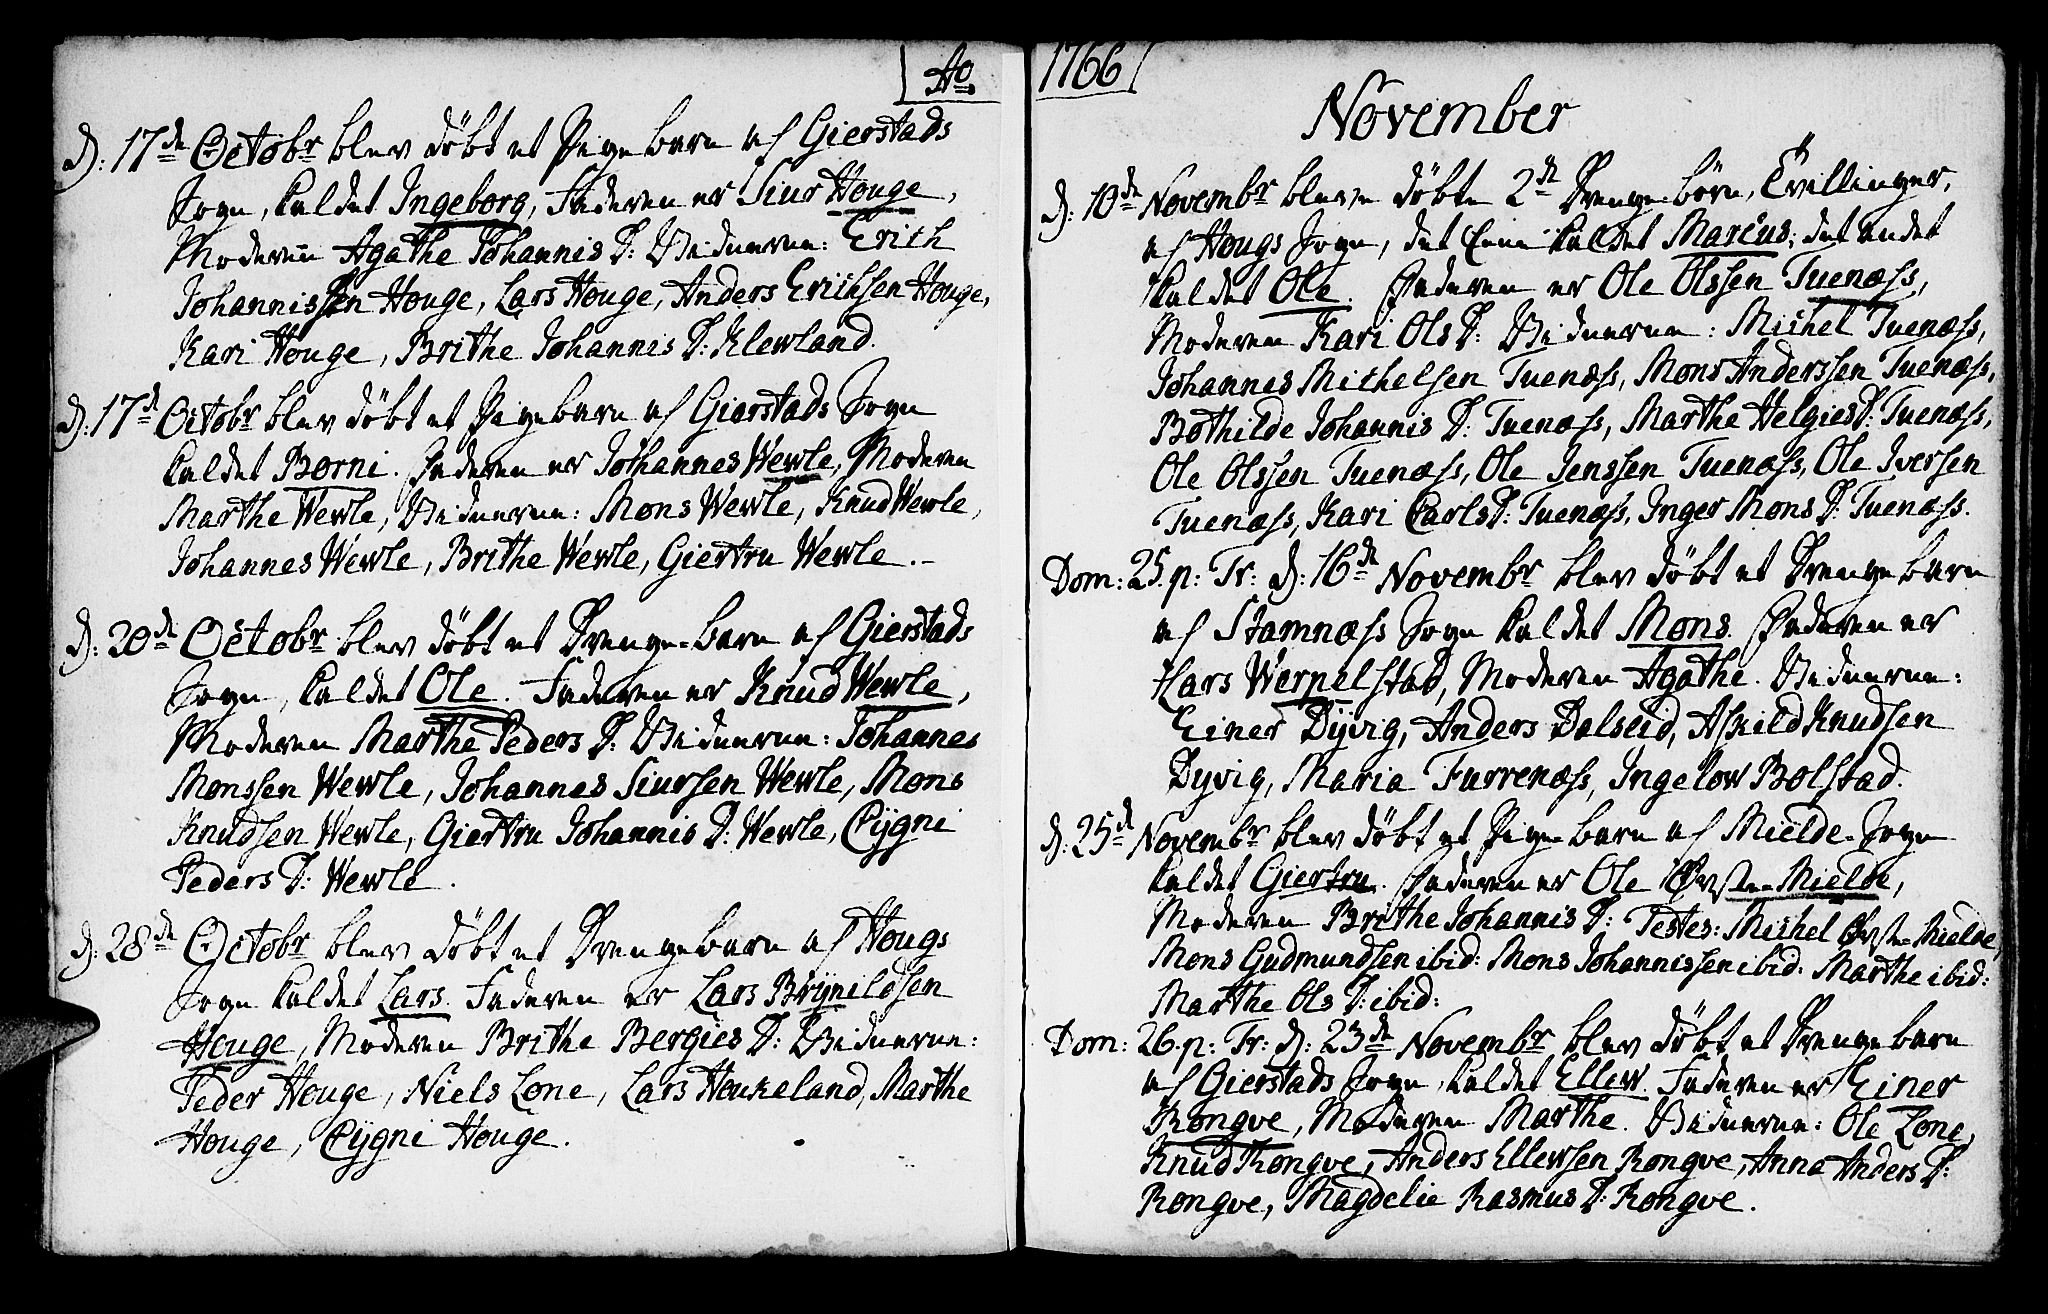 Ao
d: 17de Octobr blev døbt et Pigebarn af Gierstads
Sogn, kaldet Ingeborg, Faderen er Siur Houge,
Moderen Agathe Johannis D: Vidnerne: Erich
Johannissen Houge, Lars Houge, Anders Erichsen Houge,
Kari Houge, Brithe Johannis D: Klewland.
d: 17de Octobr blev døbt et Pigebarn af Gierstads Sogn
kaldet Børni. Faderen er Johannes Wewle, Moderen
Marthe Wewle, Vidnerne: Mons Wewle, Knud Wewle,
Johannes Wewle, Brithe Wewle, Giertru Wewle.-
d: 20de Octobr blev døbt et Drenge-barn af Gierstads
Sogn, kaldet Ole. Faderen er Knud Wewle,
Moderen Marthe Peders D: Vidnerne: Johannes
Monssen Wewle, Johannes Siursen Wewle, Mons
Knudsen Wewle, Giertru Johannis D: Wewle, Cygni
Peders D: Wewle.
d: 28de Octobr blev døbt et Drengebarn af Hougs
Sogn kaldet Lars. Faderen er Lars Brynildsen
Houge, Moderen Brithe Bergies D: Vidnerne:
Peder Houge, Niels Lone, Lars Houkeland, Marthe
Houge, Cygni Houge.
1766
November
d: 10de Novembr bleve døbte 2de Drenge-børn, Tvillinger,
af Hougs Sogn, det Eene kaldet Marcus; det andet
kaldet Ole. Faderen er Ole Olssen Tuenæss,
Moderen Kari Ols D: Vidnerne: Michel Tuenæss,
Johannes Michelsen Tuenæss, Mons Anderssen Tuenæss,
Bothilde Johannis D: Tuenæss, Marthe Helgies D: Tuenæss,
Ole Olssen Tuenæss, Ole Jenssen Tuenæss, Ole Iversen
Tuenæss, Kari Carls D: Tuenæss, Inger Mons D: Tuenæss.
Dom: 25. p: Tr: d: 16de Novembr blev døbt et Drengebarn
af Stamnæss Sogn kaldet Mons. Faderen er
Lars Wernelstad, Moderen Agathe. Vidnerne:
Einer Dyvig, Anders Dalseid, Askild Knudsen
Dyvig, Maria Furrenæss, Ingelow Bolstad.
d: 25de Novembr blev døbt et Pigebarn af Mielde-Sogn
kaldet Giertru. Faderen er Ole Øvste-Mielde,
Moderen Brithe Johannis D: Testes: Michel Øvste-Mielde,
Mons Gudmundsen ibid: Mons Johannissen ibid: Marthe ibid:
Marthe Ols D: ibid:
Dom: 26. p: Tr: d: 23de Novembr blev døbt et Drengebarn
af Gierstads Sogn, kaldet Ellew. Faderen er Einer
Rongve, Moderen Marthe. Vidnerne: Ole Lone,
Knud Rongve, Anders Ellewsen Rongve, Anna Anders D:
Rongve, Magdelie Rasmus D: Rongve.